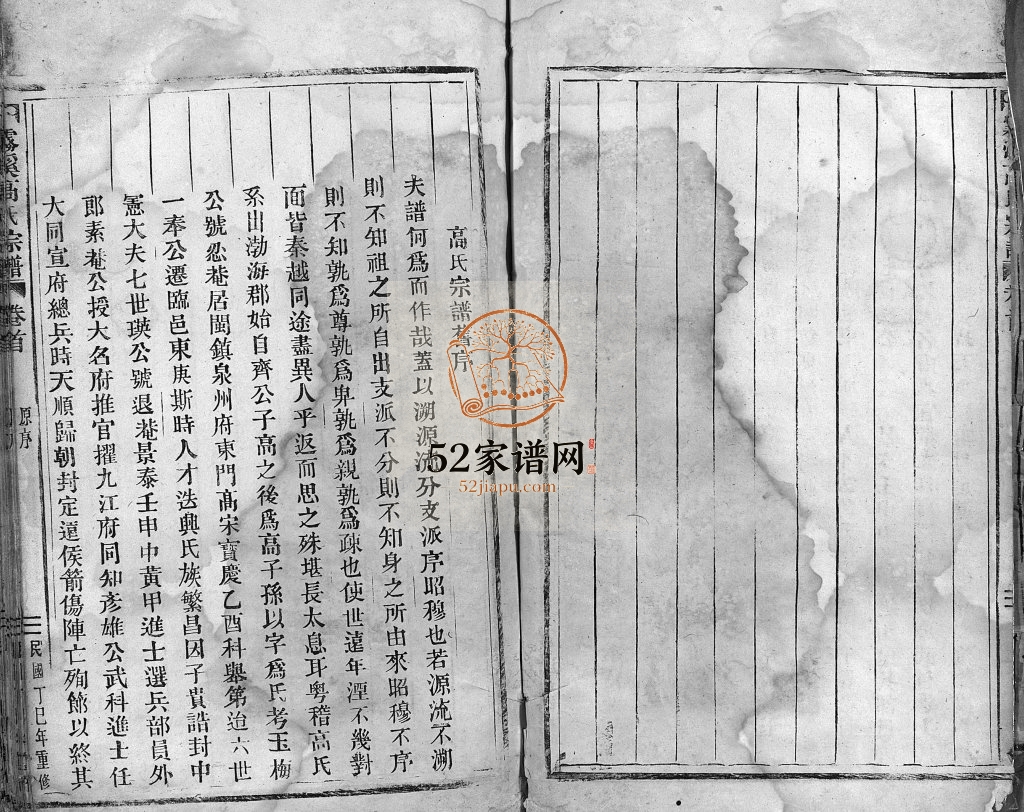 高氏宗譜舊序
夫譜何爲而作哉蓋以溯源流分支派序昭穆也若源流不溯
則不知祖之所自出支派不分則不知身之所由來昭穆不序
則不知孰爲尊孰爲卑孰爲親孰爲疎也使世遠年湮不幾對
面皆秦越同途盡異人乎返而思之殊堪長太息耳粤稽高氏
系出渤海郡始自齊公子高之後爲高子孫以字爲氏考玉梅
公號忍菴居閩鎮泉州府東門髙宋寶慶乙酉科舉第迨六世
一奉公遷臨邑東庚斯時人才迭興氏族繁昌因子貴誥封中
憲大夫七世瑛公號退菴景泰壬申中黃甲進士選兵部員外
郎素菴公授大名府推官擢九江府同知彥雄公武科進士任
大同宣府總兵時天順歸朝封定遠侯箭傷陣亡殉節以終其
霧溪高氏宗譜 卷首
原序
三
民國丁巳年重修
52家谱网
52jiapu.com